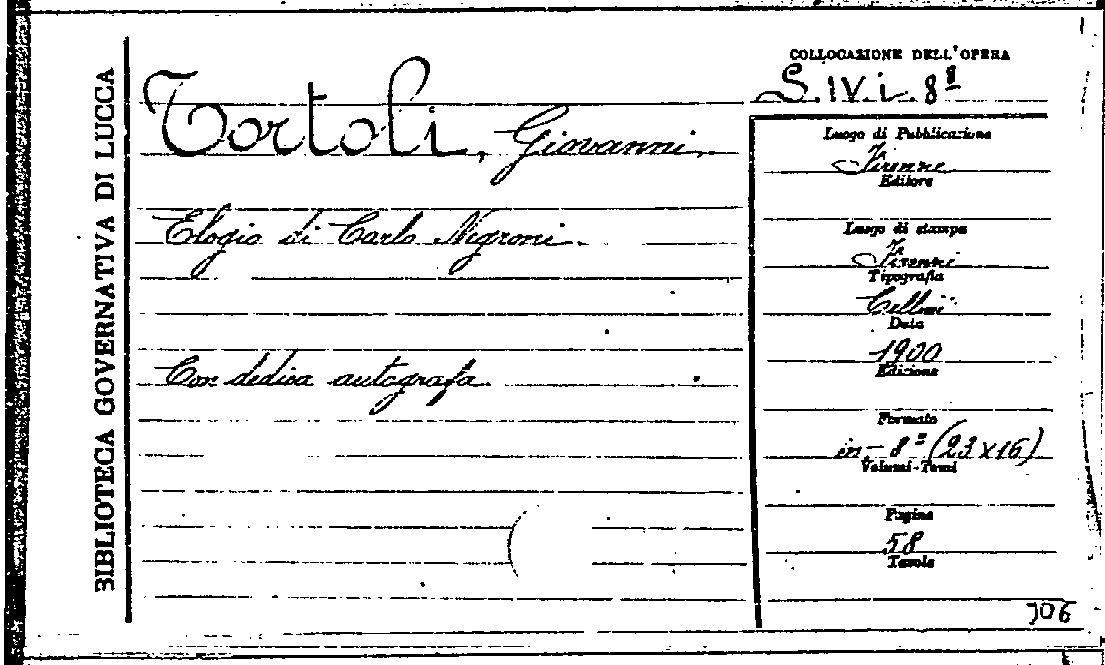 BIBLIOTECA GOVERNATIVA DI LUCCA
Tortoli, Giovanni.
Elogio di Carlo Negroni.
Con dedica autografa.
COLLOCAZIONE DELL'OPERA
S. IV. i. 8ª
Luogo di Pubblicazione
Firenze
Editore
Luogo di stampa
Firenze
Tipografia
Cellini
Data
1900
Edizione
Formato
in-8° (23x16)
Volumi-Tomi
Pagine
58
Tavole
706